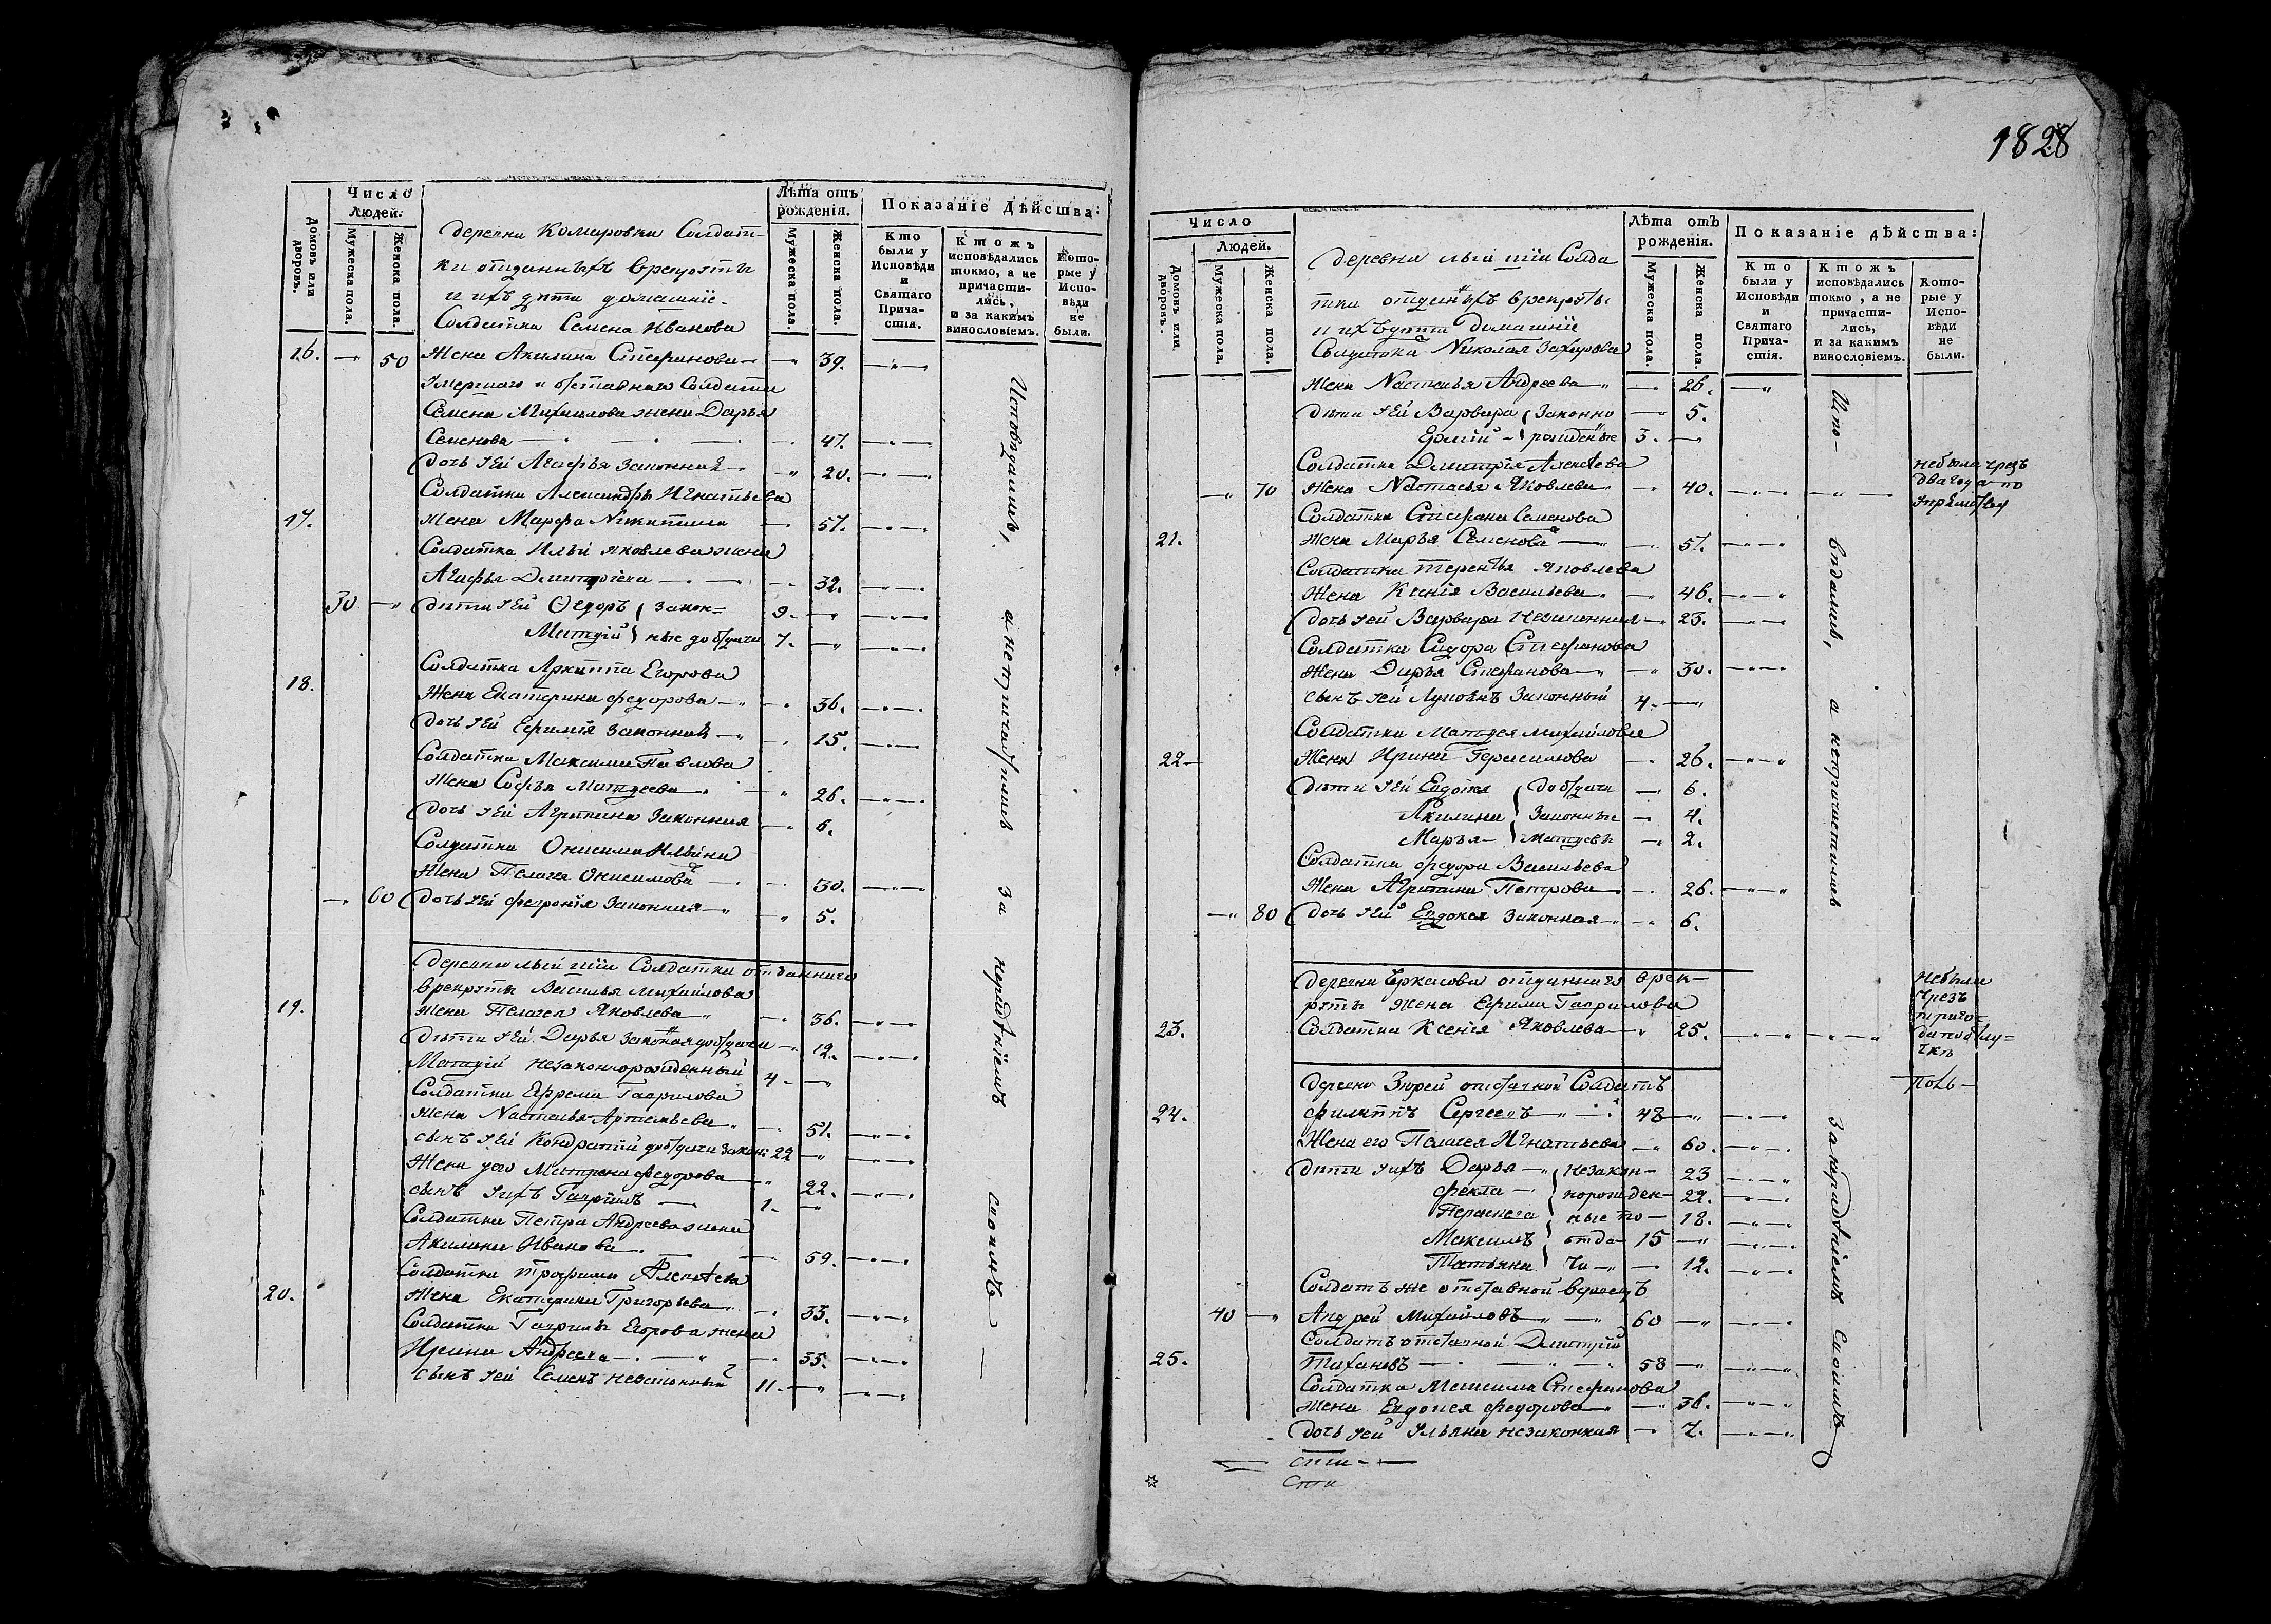 Число Людей.
Лѣта отъ рожденія.
Показаніе Дѣйства:
Домовъ или дворовъ.
Мужеска пола.
Женска пола.
Мужеска пола.
Женска пола.
Кто были у Исповѣди и Святаго Причастія.
Ктожъ исповѣдались токмо, а не причастились, и за какимъ винословіемъ.
Которые у Исповѣди не были.
деревни Комаровки Солдат-
ки отданныхъ врекруты
и ихъ дѣти домашніе.
Солдатка Семена Иванова
16. 50 Жена Акилина Стефанова 39.
Умершаго и отставнаго Солдата
Семена Михаилова жена Дарья
Семенова 47.
дочь Ея Агафья Законная 20.
Солдатка Александра Игнатьева
17. Жена Марфа Никитина 57.
Солдатка Ильи Яковлева жена
Агафья Дмитріева 32.
30 дѣти Ея Ѳедоръ Закон= 9.
Матѳей ные до отдачи 7.
Солдатка Архиппа Егорова
18. Жена Екатерина Федорова 36.
дочь Ея Ефимія Законная 15.
Солдатка Максима Павлова
Жена Софья Матѳеева 26.
дочь Ея Агрипина Законная 6.
Солдатка Онисима Ильина
Жена Пелагея Онисимова 30.
60 дочь Ея Февронія Законная 5.
деревни Солдатка отданнаго
врекруты Василья Михайлова
19. Жена Пелагея Яковлева 36.
дѣти Ея Дарья Законная до отдачи 12.
Матѳей незаконнорожденный 4.
Солдатка Ефрема Гаврилова
Жена Настасья Артемьева 51.
сынъ Ея Кондратій до отдачи Закон: 22
Жена уего Матрена Федорова 22.
сынъ Уихъ Гаврилъ 1.
Солдатка Петра Андреева жена
Акилина Иванова 59.
Солдатка Трофима Алексѣева
20. Жена Екатерина Григорьева 33.
Солдатка Гаврилы Егорова жена
Ирина Андреева 35.
сынъ Ея Семенъ незаконный 11.
Исповѣдались, а непричастились за нерадѣніемъ своимъ
1828
Число Людей.
Лѣта отъ рожденія.
Показаніе дѣйства:
Домовъ или дворовъ.
Мужеска пола.
Женска пола.
Мужеска пола.
Женска пола.
Кто были у Исповѣди и Святаго Причастія.
Ктожъ исповѣдались токмо, а не причастились, и за какимъ винословіемъ.
Которые у Исповѣди не были.
деревни Солда
тки отданныхъ врекруты
и ихъ дѣти домашніе
Солдатка Николая Захарова
Жена Настасья Андреева 26.
дѣти Ея Варвара Законно 5.
рожденные 3.
Солдатка Дмитрія Алексѣева
70 Жена Настасья Яковлева 40.
небыла чрезъ
два года по
Солдатка Стефана Семенова
21. Жена Марья Семенова 51.
Солдатка Терентья Яковлева
Жена Ксенія Васильева 46.
дочь Ея Варвара Незаконная 23.
Солдатка Сидора Стефанова
Жена Дарья Стефанова 30.
сынъ Ея Законный 4.
Солдатка Матѳея Михайлова
22 Жена Ирина Герасимова 26.
дѣти Ея Евдокея до отдачи 6.
Акилина Законные 4.
Марья 2.
Солдатка Федора Васильева
Жена Агрипина Петрова 26.
80 дочь Ея Евдокея Законная 6.
деревни Черкасова отданнаго врек-
руты Жена Ефима Гаврилова
23. Солдатка Ксенія Яковлева 25.
Небыла
Чрезъ
деревни отставной Солдатъ
24. Филиппъ Сергеевъ 48
Жена его Пелагея Игнатьева 60.
дѣти Уихъ Дарья незакон- 23
Фекла норожден- 22.
ные по 18.
Максимъ отда- 15
Татьяна чи 12.
Солдатъ же отставной
40 Андрей Михайловъ 60
Солдатъ отставной Дмитрій
25. Тихановъ 58
Солдатка Максима Стефанова
Жена Евдокея Федорова 36.
дочь Ея Ульяна незаконная 7.
Испо-
вѣдались, а непричастились за нерадѣніемъ своимъ